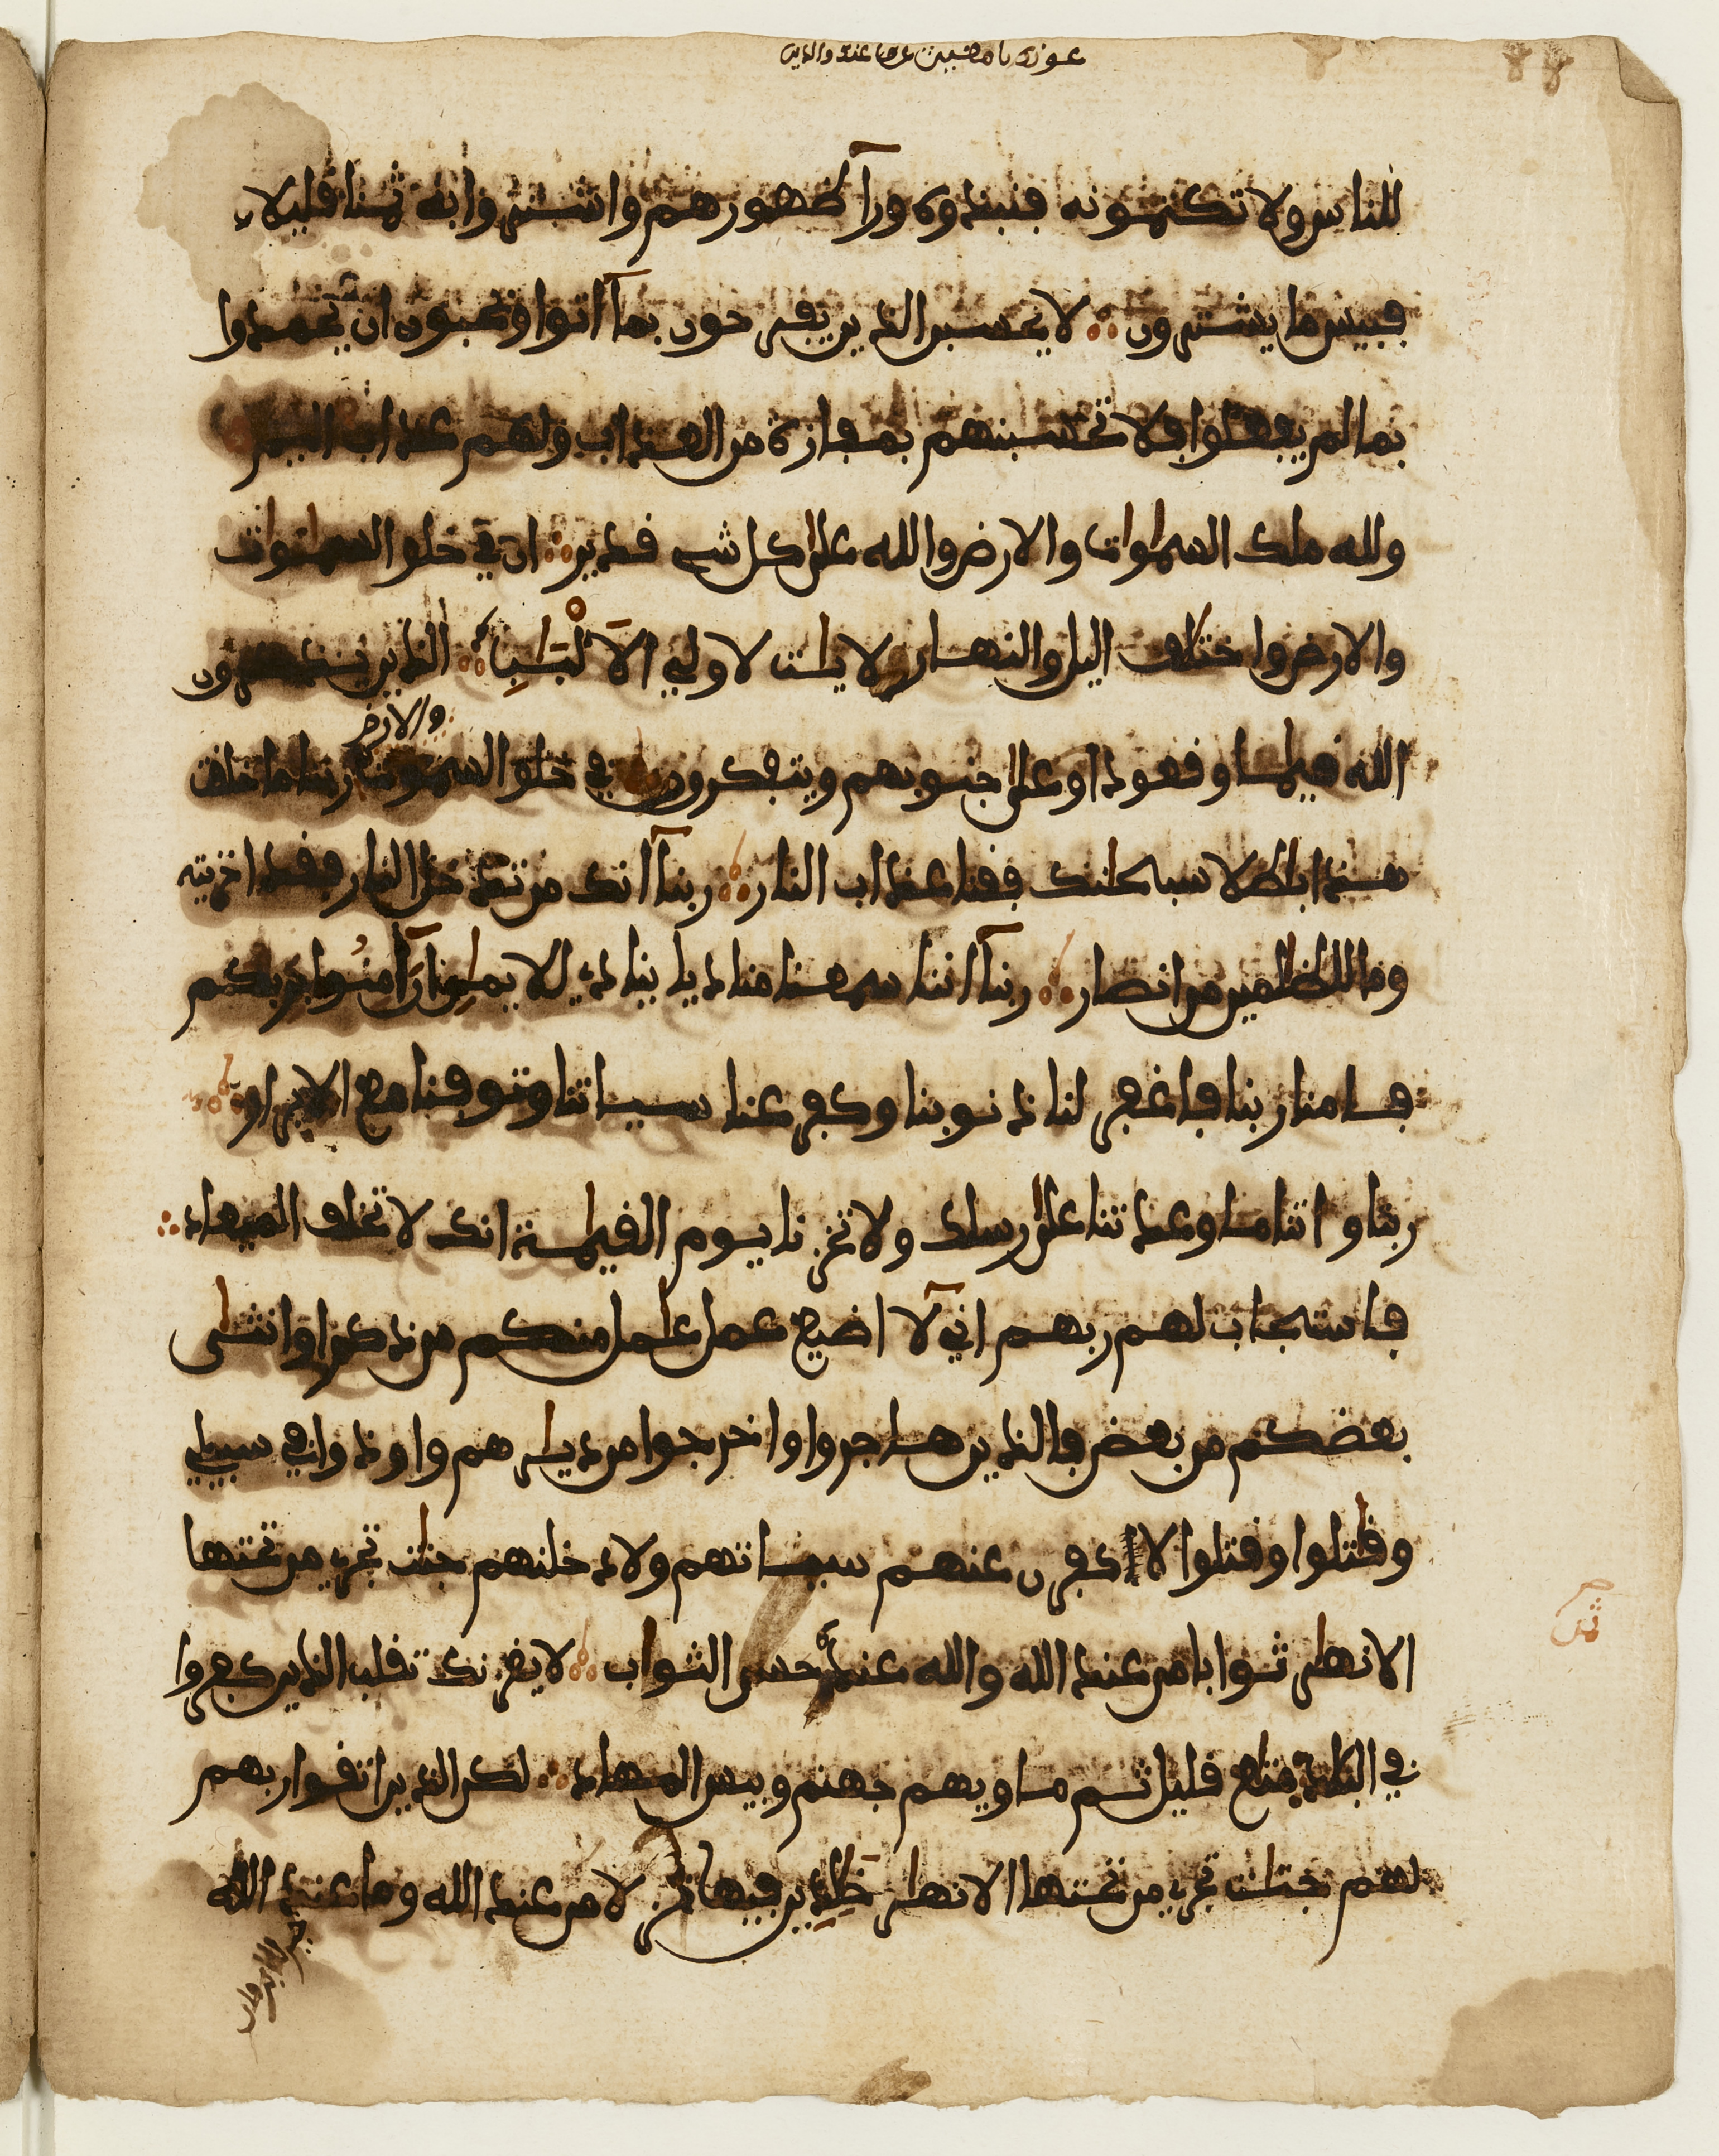 للناس ولا تكتمونه فنبذوه ورآ ظهورهم واشتروا به ثمنا قليلا
فبيس ما يشترون لا يحسبن الذين يفرحون بما آتوا ويحبون ان يحمدوا
بما لم يفعلوا فلا تحسبنهم بمفازة من العذاب ولهم عذاب اليم
ولله ملك السموات والارض والله على كل شيء قدير ان في خلق السموات
والارض واختلف اليل والنهار لايت لاولي الالبب الذين يذكرون
الله قيما وقعودا وعلى جنوبهم ويتفكرون في خلق السموت والارض ربنا ما خلقت
هذا بطلا سبحنك فقنا عذاب النار ربنآ انك من تدخل النار فقد اخزيته
وما للظلمين من انصار ربنآ اننا سمعنا مناديا ينادي للايمن ان آمنوا بربكم
فامنا ربنا فاغفر لنا ذنوبنا وكفر عنا سياتنا وتوفنا مع الابرار
ربنا واتنا ما وعدتنا على رسلك ولا تخزنا يوم القيمة انك لا تخلف الميعاد
فاستجاب لهم ربهم اني لآ اضيع عمل عمل منكم من ذكر او انثى
بعضكم من بعض فالذين هاجروا واخرجوا من ديرهم واوذوا في سبيلي
وقتلوا وقتلوا لاكفرن عنهم سياتهم ولادخلنهم جنت تجري من تحتها
الانهر ثوابا من عند الله والله عنده حسن الثواب لا يغرنك تقلب الذين كفروا
في البلد متع قليل ثم ماويهم جهنم وبيس المهاد لكن الذين اتقوا ربهم
لهم جنت تجري من تحتها الانهر خلدين فيها نزلا من عند الله وما عند الله
خير للابرار